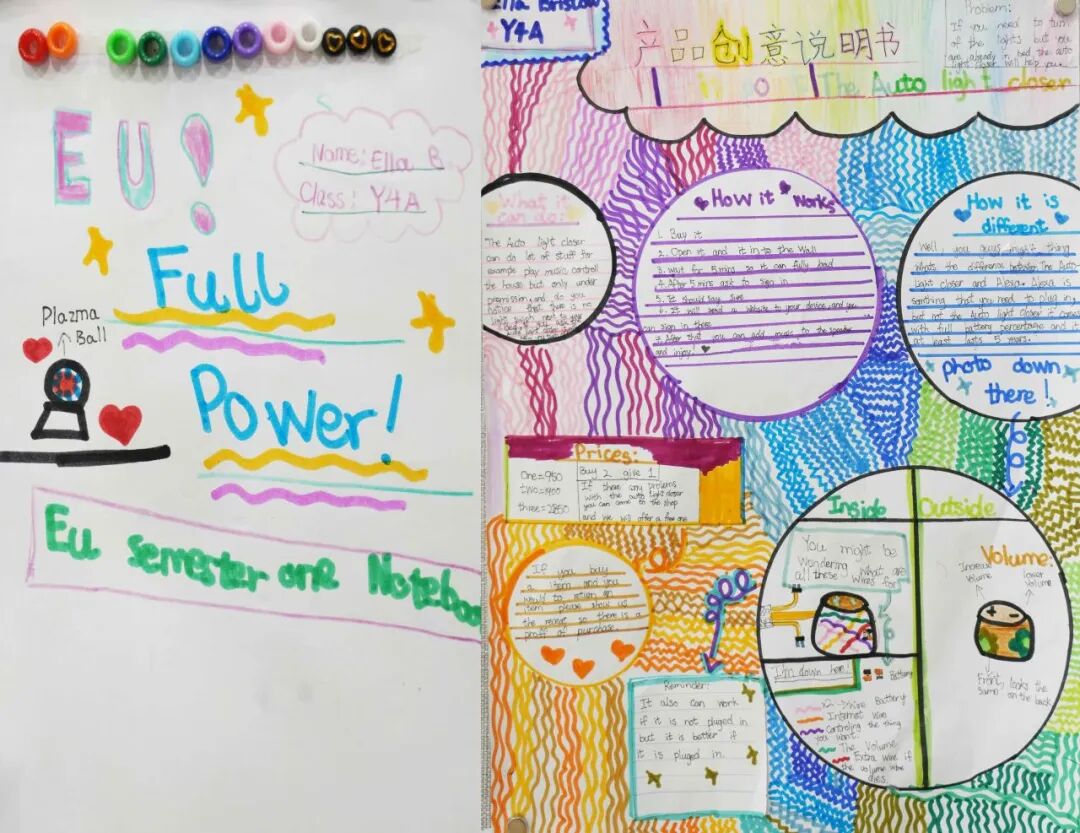 EU!
Name: Ella B
Class: Y4A
Full
Power!
Plazma
Ball
Eu semester one Noteboo
Y4A
产品创意说明书
The Auto light closer
Problem:
If you need to turn
of the lights but you
are already in bed the auto
light closer will help you.
What it
can do:
The Auto light closer
can do lot of stuff for
example play music controll
the house but only under
How it works
1. Buy it
2. Open it and it in to the Wall
3. Wait for 5 mins so it can fully load
4. After 5 mins ask to sign in
5. It should say sure
6. It will send a website to your device and you
can sign in there
7. After that you can add music to the speaker
and injoy!
How it is
different
Well, you guys might thing
Whats the difference between The Auto
light closer and Alexa. Alexa is
somthing that you need to plug in
but not the Auto light closer it comes
with full battery percentage and it
at least lasts 5 years.
photo down
there!
Prices:
One=950
two=1900
three=2850
Buy 2 give 1
If there any problems
with the auto light closer
you can come to the shop
and we will offer a few one
If you buy
a item and you
would to return an
item please show us
the receipt so there is a
proff of purchase.
Reminder:
It also can work
if it is not pluged in
but it is better if
it is pluged in.
Inside
You might be
Wondering what are
all these wires for
I'm down here!
Battery
x2 → Wire Battery
Internet wire
Controling the thing
you want.
The Volume
Extra wire if
the volume wire
dies.
Outside
Volume:
Increase
Volume
lower
Volume
Front, looks the
same on the back